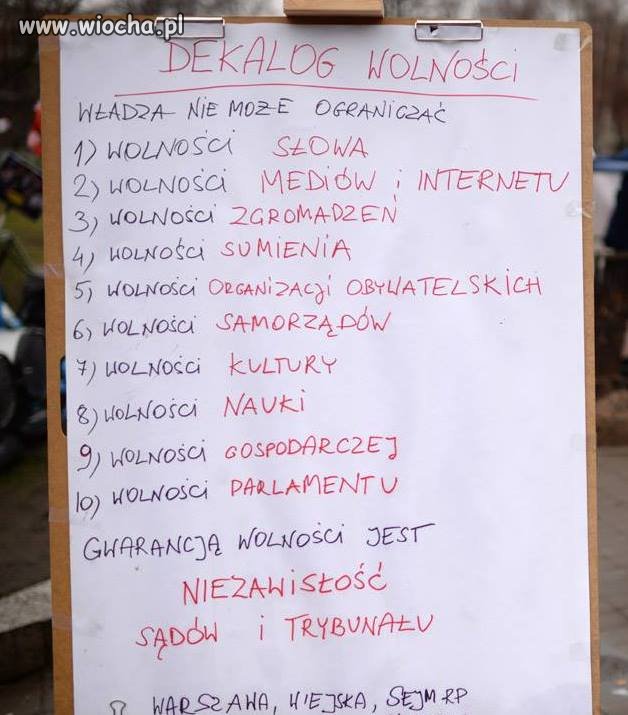 www.wiocha.pl
DEKALOG WOLNOŚCI
WŁADZA NIE MOŻE OGRANICZAĆ
1) WOLNOŚCI SŁOWA
2) WOLNOŚCI MEDIÓW i INTERNETU
3) WOLNOŚCI ZGROMADZEŃ
4) WOLNOŚCI SUMIENIA
5) WOLNOŚCI ORGANIZACJI OBYWATELSKICH
6) WOLNOŚCI SAMORZĄDÓW
7) WOLNOŚCI KULTURY
8) WOLNOŚCI NAUKI
9) WOLNOŚCI GOSPODARCZEJ
10) WOLNOŚCI PARLAMENTU
GWARANCJĄ WOLNOŚCI JEST
NIEZAWISŁOŚĆ
SĄDÓW i TRYBUNAŁU
WARSZAWA, WIEJSKA, SEJM RP